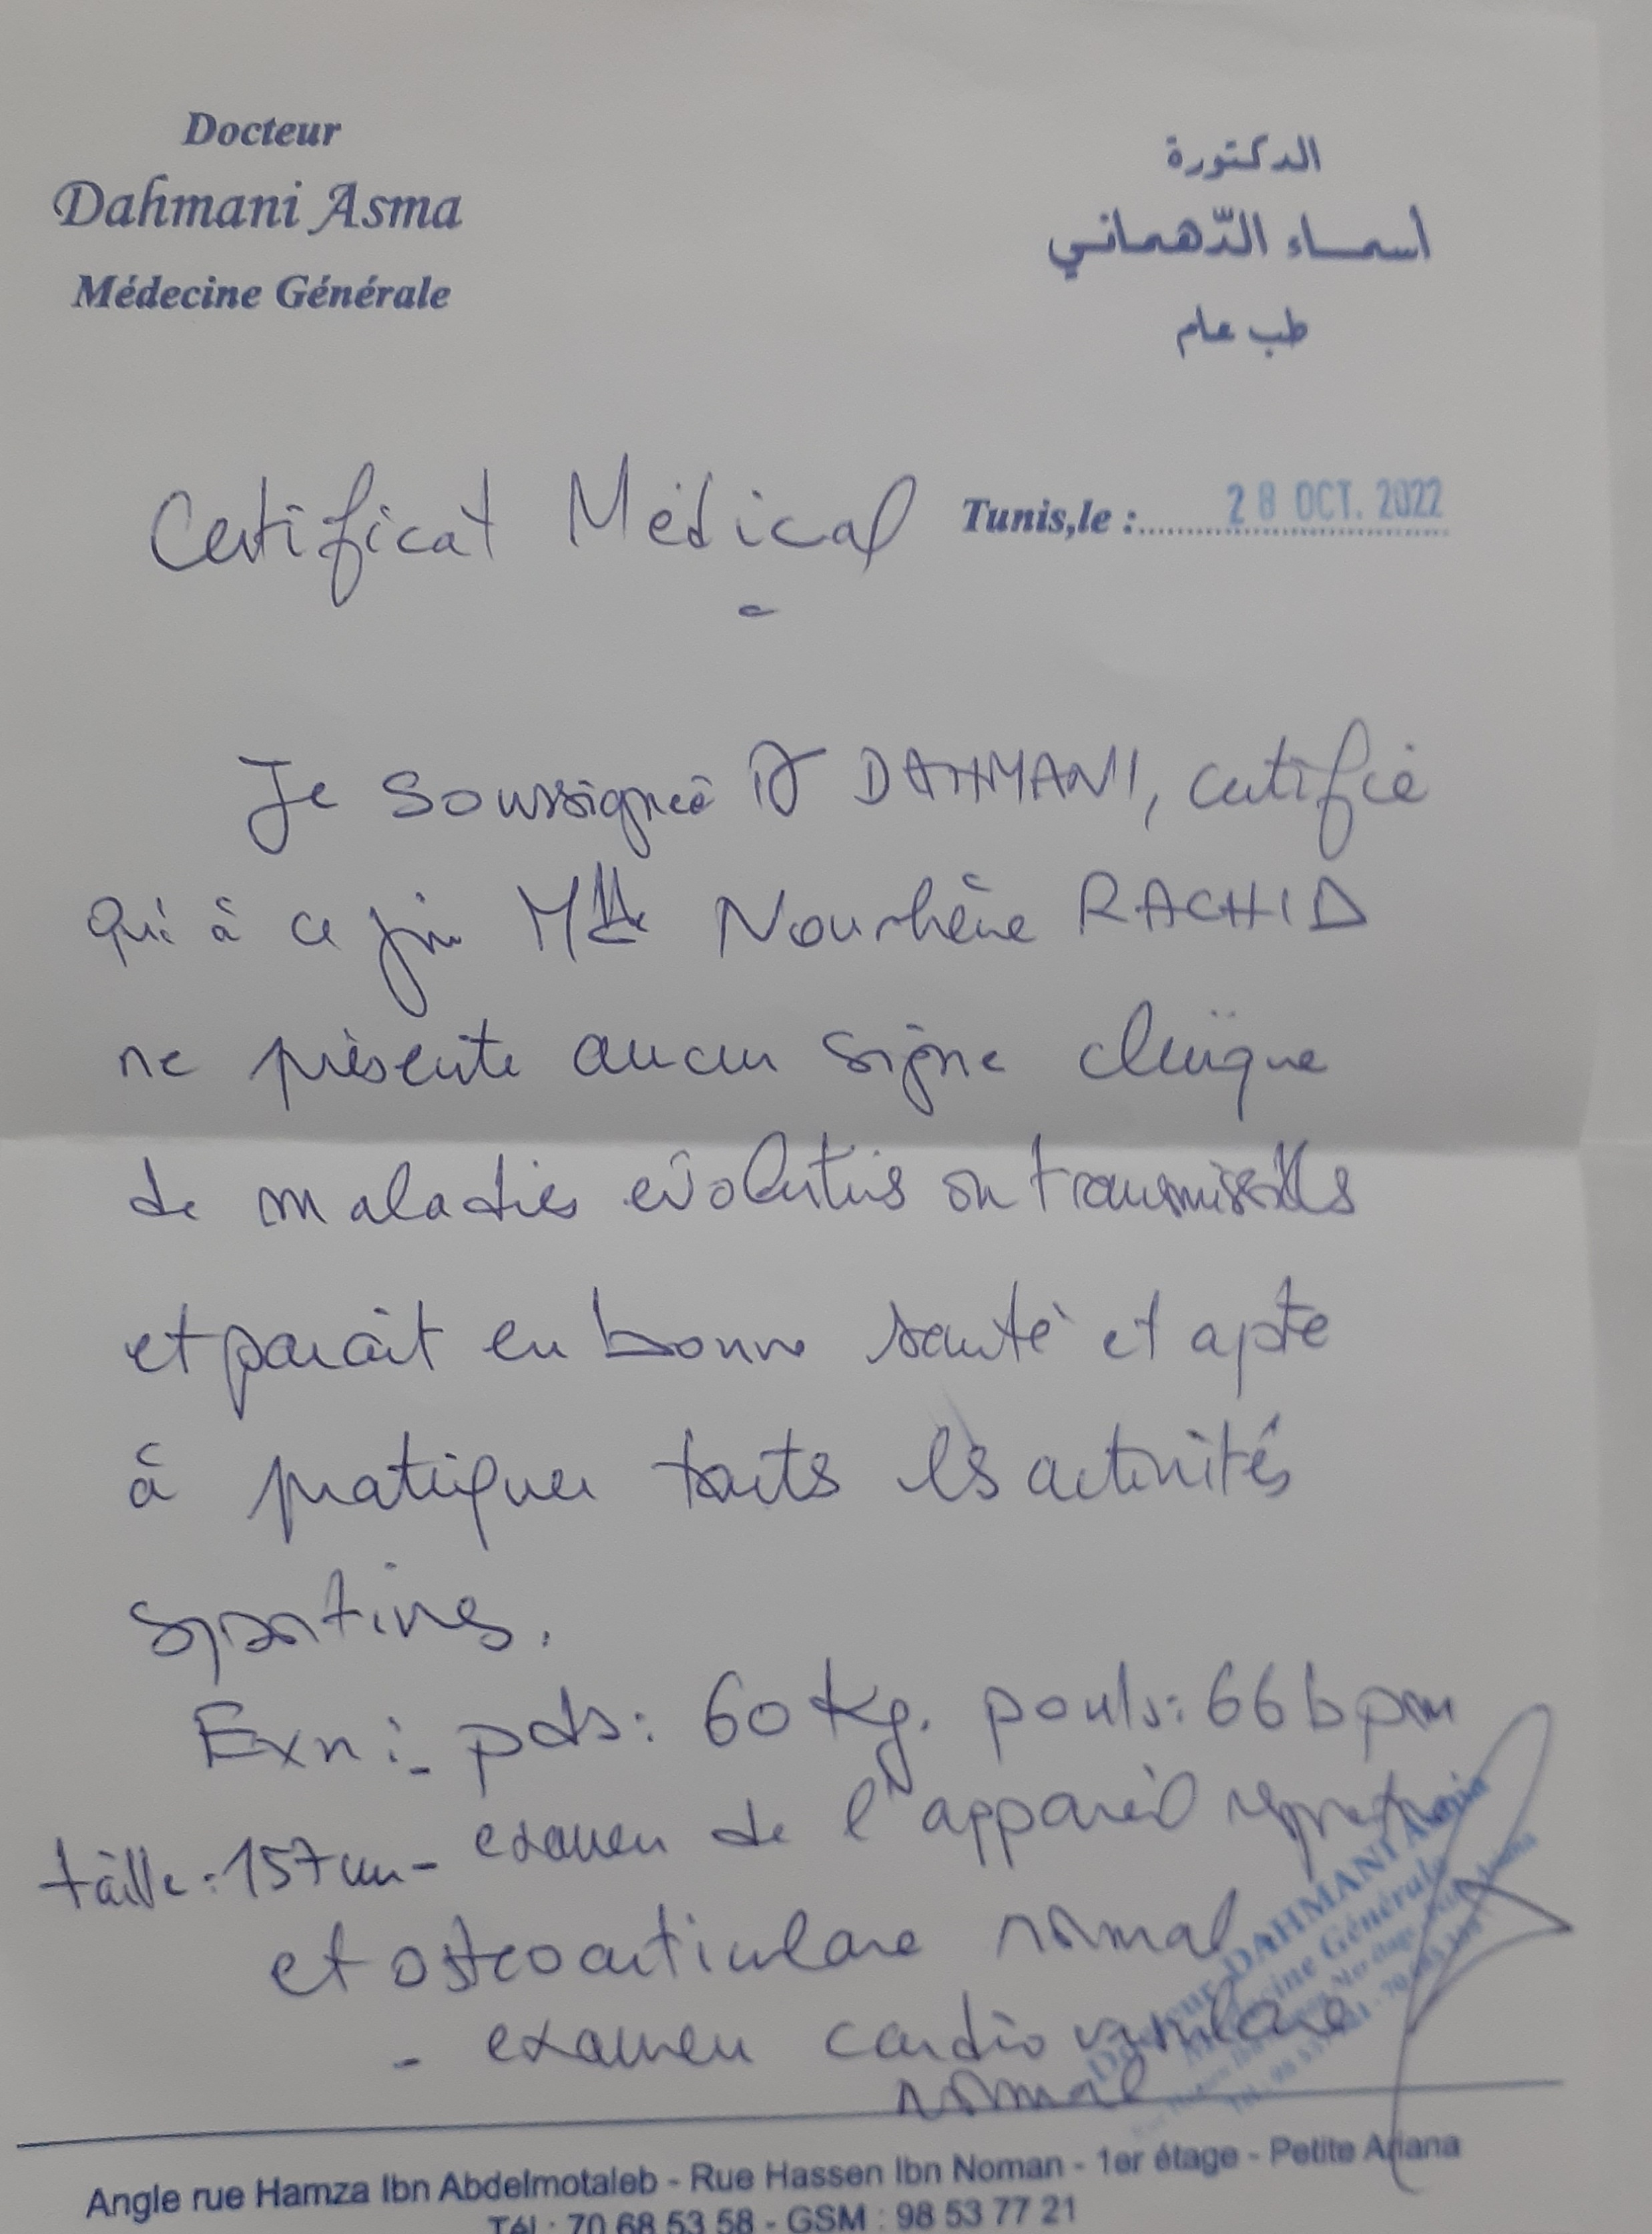 Docteur
Dahmani Asma
Médecine Générale
الدكتورة
أسماء الدّهماني
طب عام
Certificat Médical
Tunis,le : 28 OCT. 2022
Je soussignée Dr DAHMANI, certifie
qu'à ce jour Mlle Nourhène RACHID
ne présente aucun signe clinique
de maladies évolutives ou transmissibles
et parait en bonne santé et apte
à pratiquer toutes les activités
sportives.
Exn :- pds : 60 kg. pouls : 66 bpm
taille : 157 cm - examen de l'appareil respiratoire
et osteoarticulaire normal
- examen cardiovasculaire
normal
Docteur DAHMANI Asma
Médecine Générale
Angle rue Hamza Ibn Abdelmotaleb - Rue Hassen Ibn Noman - 1er étage - Petite Ariana
Tél : 70 68 53 58 - GSM : 98 53 77 21